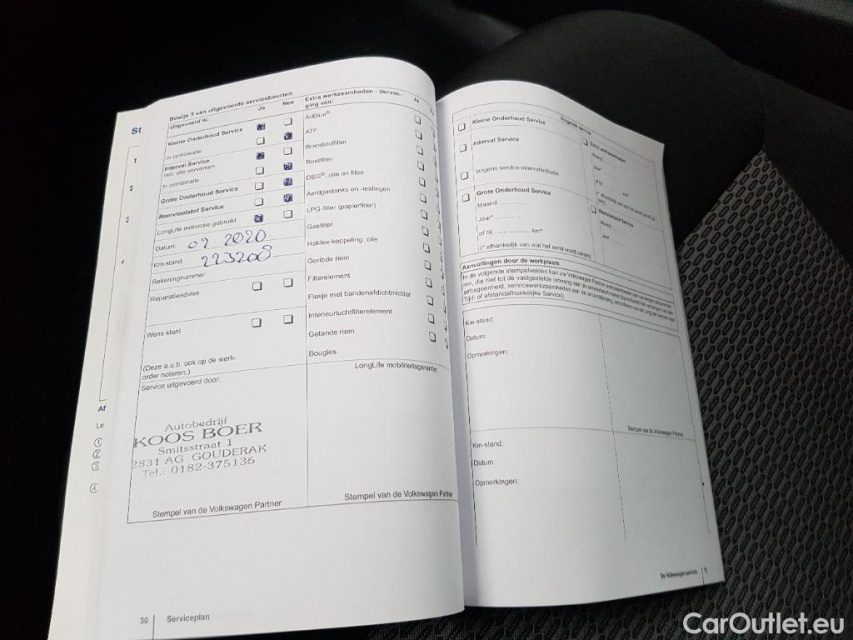 St
Bewijs 5 van uitgevoerde servicebeurten
Uitgevoerd is:
Ja
Nee
Kleine Onderhoud Service
In combinatie
Interval Service
incl. olie verversen
In combinatie
Grote Onderhoud Service
Remvloeistof Service
LongLife motorolie gebruikt
Datum: 07 2020
Km-stand: 223208
Rekeningnummer:
Reparatieadvies
Wens klant
(Deze a.u.b. ook op de werk-
order noteren.)
Service uitgevoerd door:
Autobedrijf
KOOS BOER
Smitsstraat 1
2831 AG GOUDERAK
Tel.: 0182-375136
Stempel van de Volkswagen Partner
Extra werkzaamheden - Vervan-
ging van:
Ja
AdBlue®
ATF
Brandstoffilter
Roetfilter
DSG®, olie en filter
Aardgastanks en -leidingen
LPG-filter (papierfilter)
Gasfilter
Haldex-koppeling: olie
Geribde riem
Filterelement
Flesje met bandenafdichtmiddel
Interieurluchtfilterelement
Getande riem
Bougies
LongLife mobiliteitsgarantie
Stempel van de Volkswagen Partner
Af
1
2
3
4
36
Serviceplan
Volgende service
Kleine Onderhoud Service
Interval Service
Volgens service-intervalindicatie
Grote Onderhoud Service
Maand
Jaar*
of bij
km*
(* afhankelijk van wat het eerst wordt bereikt)
Aanvullingen door de werkplaats
Km-stand:
Datum:
Opmerkingen:
Stempel van de Volkswagen Partner
Km-stand:
Datum:
Opmerkingen:
De Volkswagen service
CarOutlet.eu